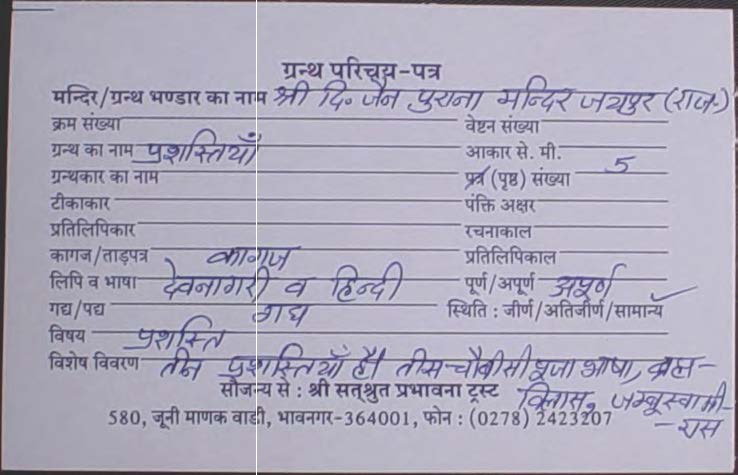 ग्रन्थ परिचय-पत्र
मन्दिर/ग्रन्थ भण्डार का नाम श्री दि. जैन पुराना मन्दिर जयपुर (राज.)
क्रम संख्या वेष्टन संख्या
ग्रन्थ का नाम प्रशस्तियाँ आकार से. मी.
ग्रन्थकार का नाम पत्र (पृष्ठ) संख्या 5
टीकाकार पंक्ति अक्षर
प्रतिलिपिकार रचनाकाल
कागज/ताड़पत्र कागज प्रतिलिपिकाल
लिपि व भाषा देवनागरी व हिन्दी पूर्ण/अपूर्ण अपूर्ण
गद्य/पद्य गद्य स्थिति : जीर्ण/अतिजीर्ण/सामान्य
विषय प्रशस्ति
विशेष विवरण तीन प्रशस्तियाँ है। तीस-चौबीसी पूजा भाषा, ब्रह्म-
सौजन्य से : श्री सत्श्रुत प्रभावना ट्रस्ट विलास, जम्बूस्वामी-
580, जूनी माणक वाडी, भावनगर-364001, फोन : (0278) 2423207 -रास